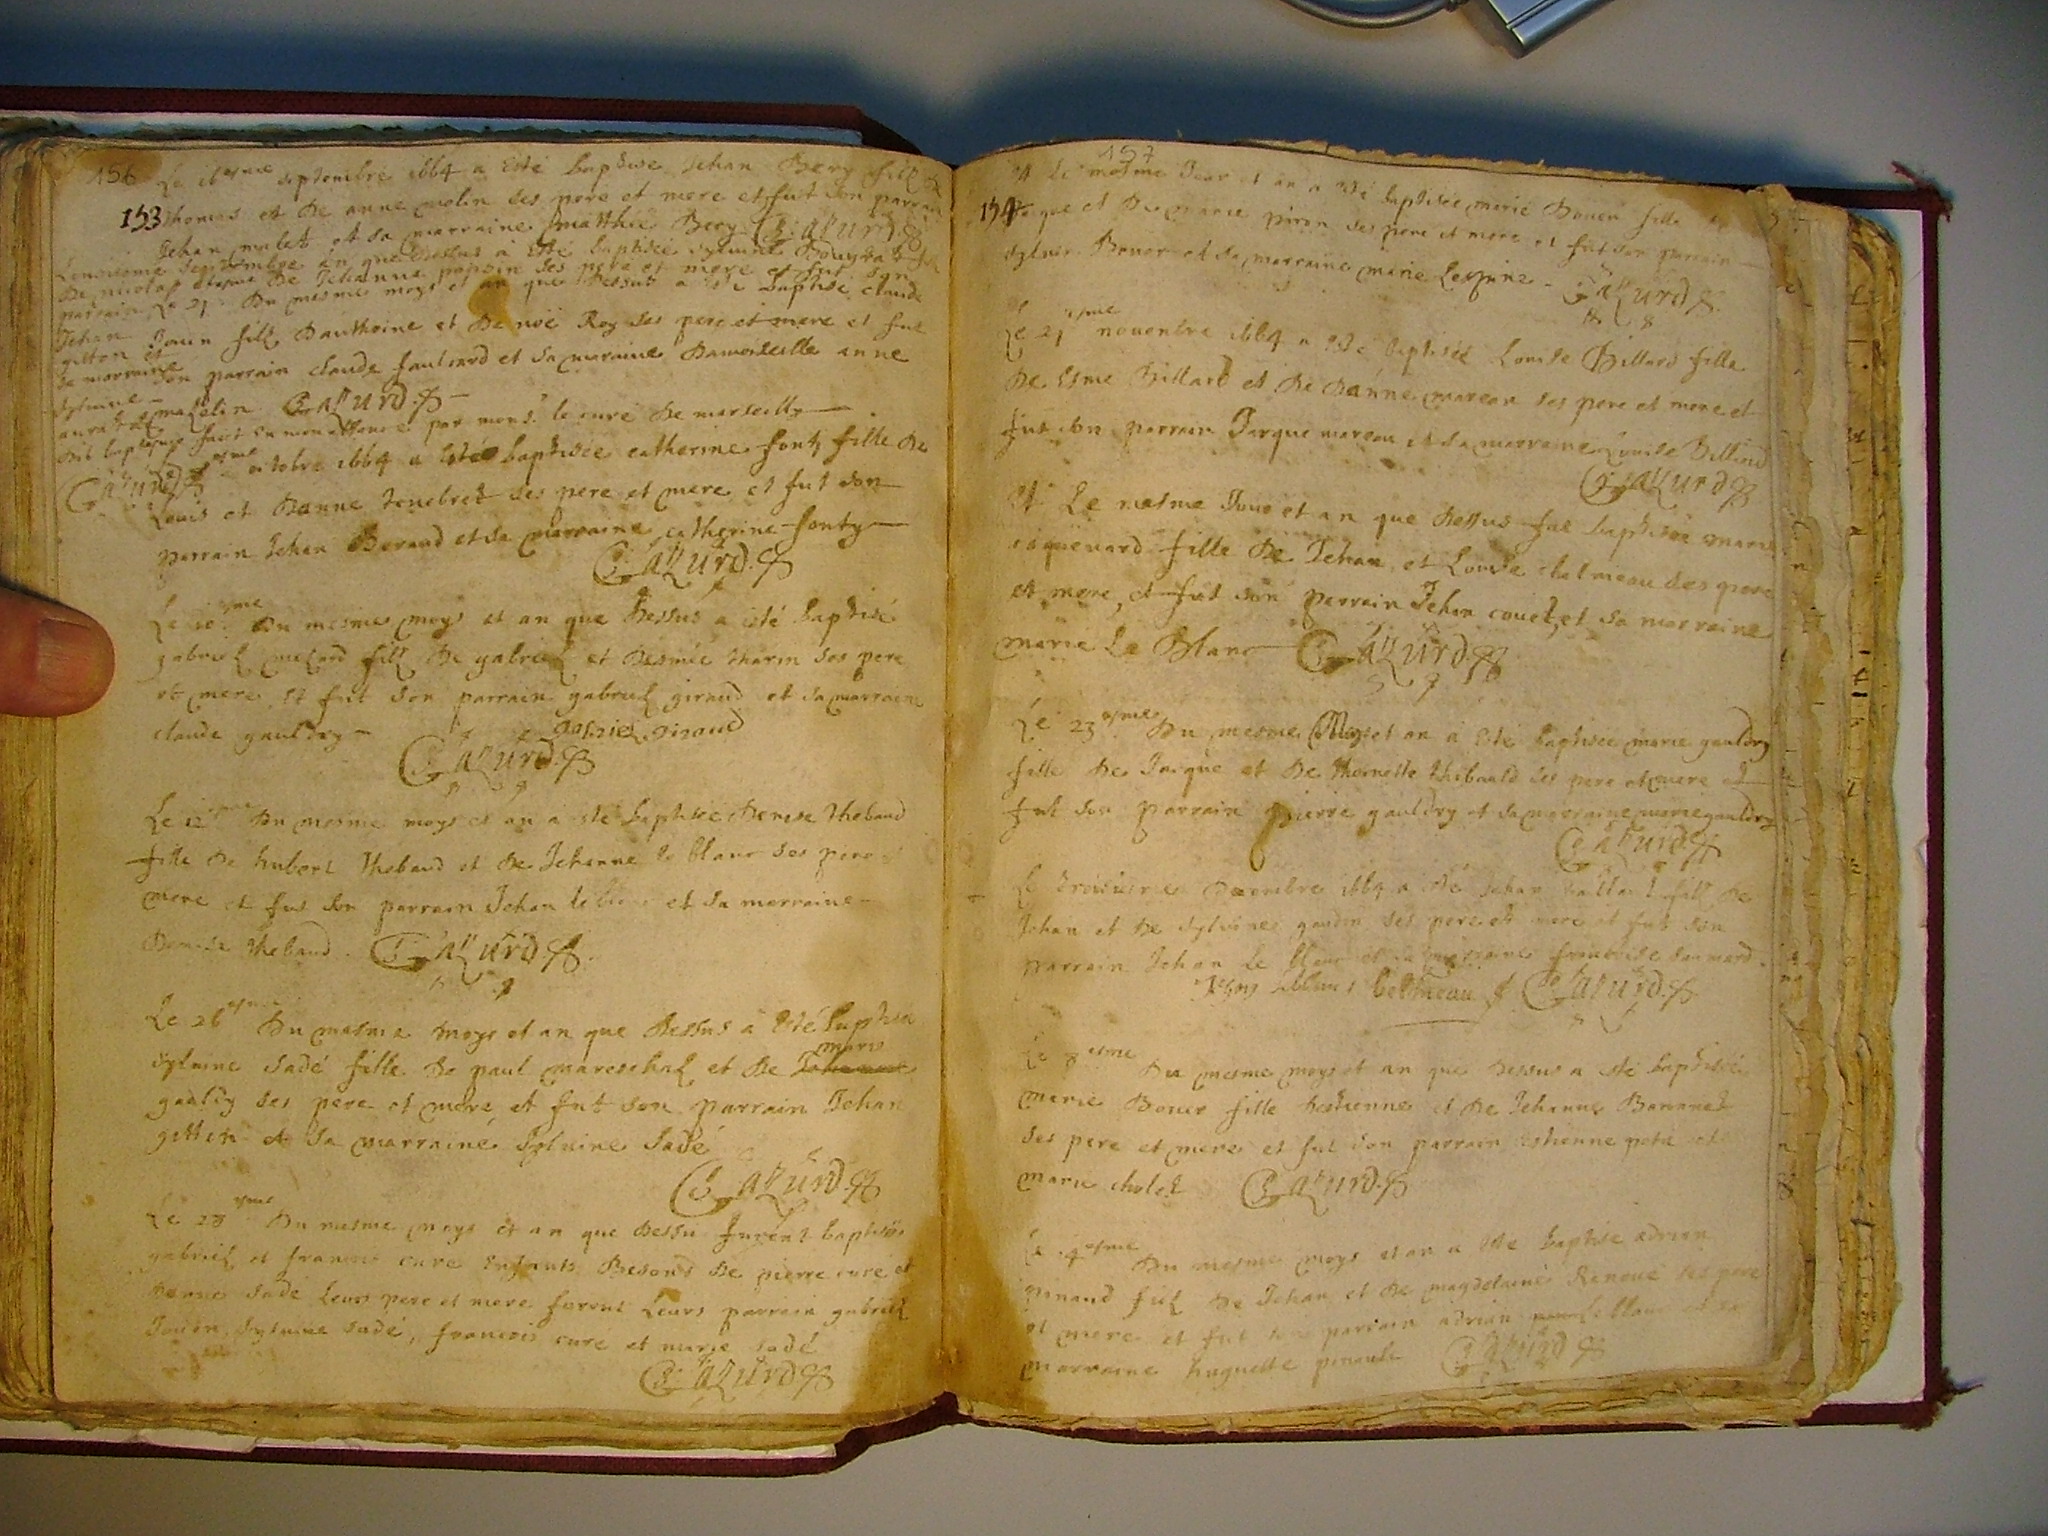 156
153
Le 16esme septembre 1664 a esté baptisé Jehan Bery filz de
thomas et de anne molin ses pere et mere et fut son parrain
Jehan mulet et sa marraine matthie Bery G. aZurd
septembre an que dessus a esté baptisée sylvine
de nicolas et de Jehanne popsin ses pere et mere et fut son
parrain Jehan gitton et sa marraine sylvine
Le 21 du mesme moys et an que dessus a esté baptisé claude
Jouin filz danthoine et de noë Roy ses pere et mere et fut
son parrain claude faulsard et sa maraine damoiselle anne
mazelin G. aZurd
dit baptesme faict en mon absence par mons.r le curé de marseilly
G. aZurd
Le esme octobre 1664 a esté baptisée catherine fonty fille de
Louis et danne tenebret ses pere et mere et fut son
parrain Jehan Beraud et sa marraine catherine fonty
G. aZurd
Le 10esme du mesme moys et an que dessus a esté baptisé
gabriel mezard filz de gabriel et desmée tharin ses pere
et mere et fut son parrain gabriel giraud et sa marraine
claude gauldry gabriel giraud
G. aZurd
Le 12esme du mesme moys et an a esté baptisée denise thebaud
fille de hubert thebaud et de Jehanne le blanc ses pere et
mere et fut son parrain Jehan le blanc et sa marraine
denise thebaud. G. aZurd
Le 26esme du mesme moys et an que dessus a esté baptisée
sylvine sadé fille de paul mareschal et de Jehanne marie
gauldry ses pere et mere et fut son parrain Jehan
gitton et sa marraine sylvine sadé
G. aZurd
Le 28esme du mesme moys et an que dessu furent baptisés
gabriel et francois cure enfants besons de pierre cure et
danne sadé leurs pere et mere furent leurs parrain gabriel
Jouin, sylvine sadé, francois curé et marie sadé
G. aZurd
157
154
et le mesme Jour et an a esté baptisée marie Bouer fille de
Jacque et de marie piron ses pere et mere et fut son parrain
sylvin Bouer et sa marraine marie Lespine G. aZurd
Le 21esme novenbre 1664 a esté baptisée Louise Billard fille
de Esme Billard et de danne mareau ses pere et mere et
fut son parrain Jacque mareau et sa marraine Louise Billard
G. aZurd
et Le mesme Jour et an que dessus fut baptisée marie
coquenard fille de Jehan et Louise chalmeau ses pere
et mere, et fut son parrain Jehan couet, et sa marraine
marie Le Blanc G. aZurd
Le 23esme du mesme Moys et an a esté baptisée marie gauldry
fille de Jacque et de thoinette thibauld ses pere et mere et
fut son parrain pierre gauldry et sa marraine marie gauldry
G. aZurd
Le troisiesme decembre 1664 a esté Jehan filz de
Jehan et de sylvine gaudin ses pere et mere et fut son
parrain Jehan Le blanc et sa marraine francoise
Jehan leblanc G. aZurd
Le 8esme du mesme moys et an que dessus a esté baptisée
marie Bouer fille destienne et de Jehanne
ses pere et mere et fut son parrain estienne petit et
marie cholet G. aZurd
Le esme du mesme moys et an a esté baptisé adrian
pinaud filz de Jehan et de magdelaine Renoué ses pere
et mere et fut son parrain adrian Le blanc et sa
marraine huguette pinault G. aZurd